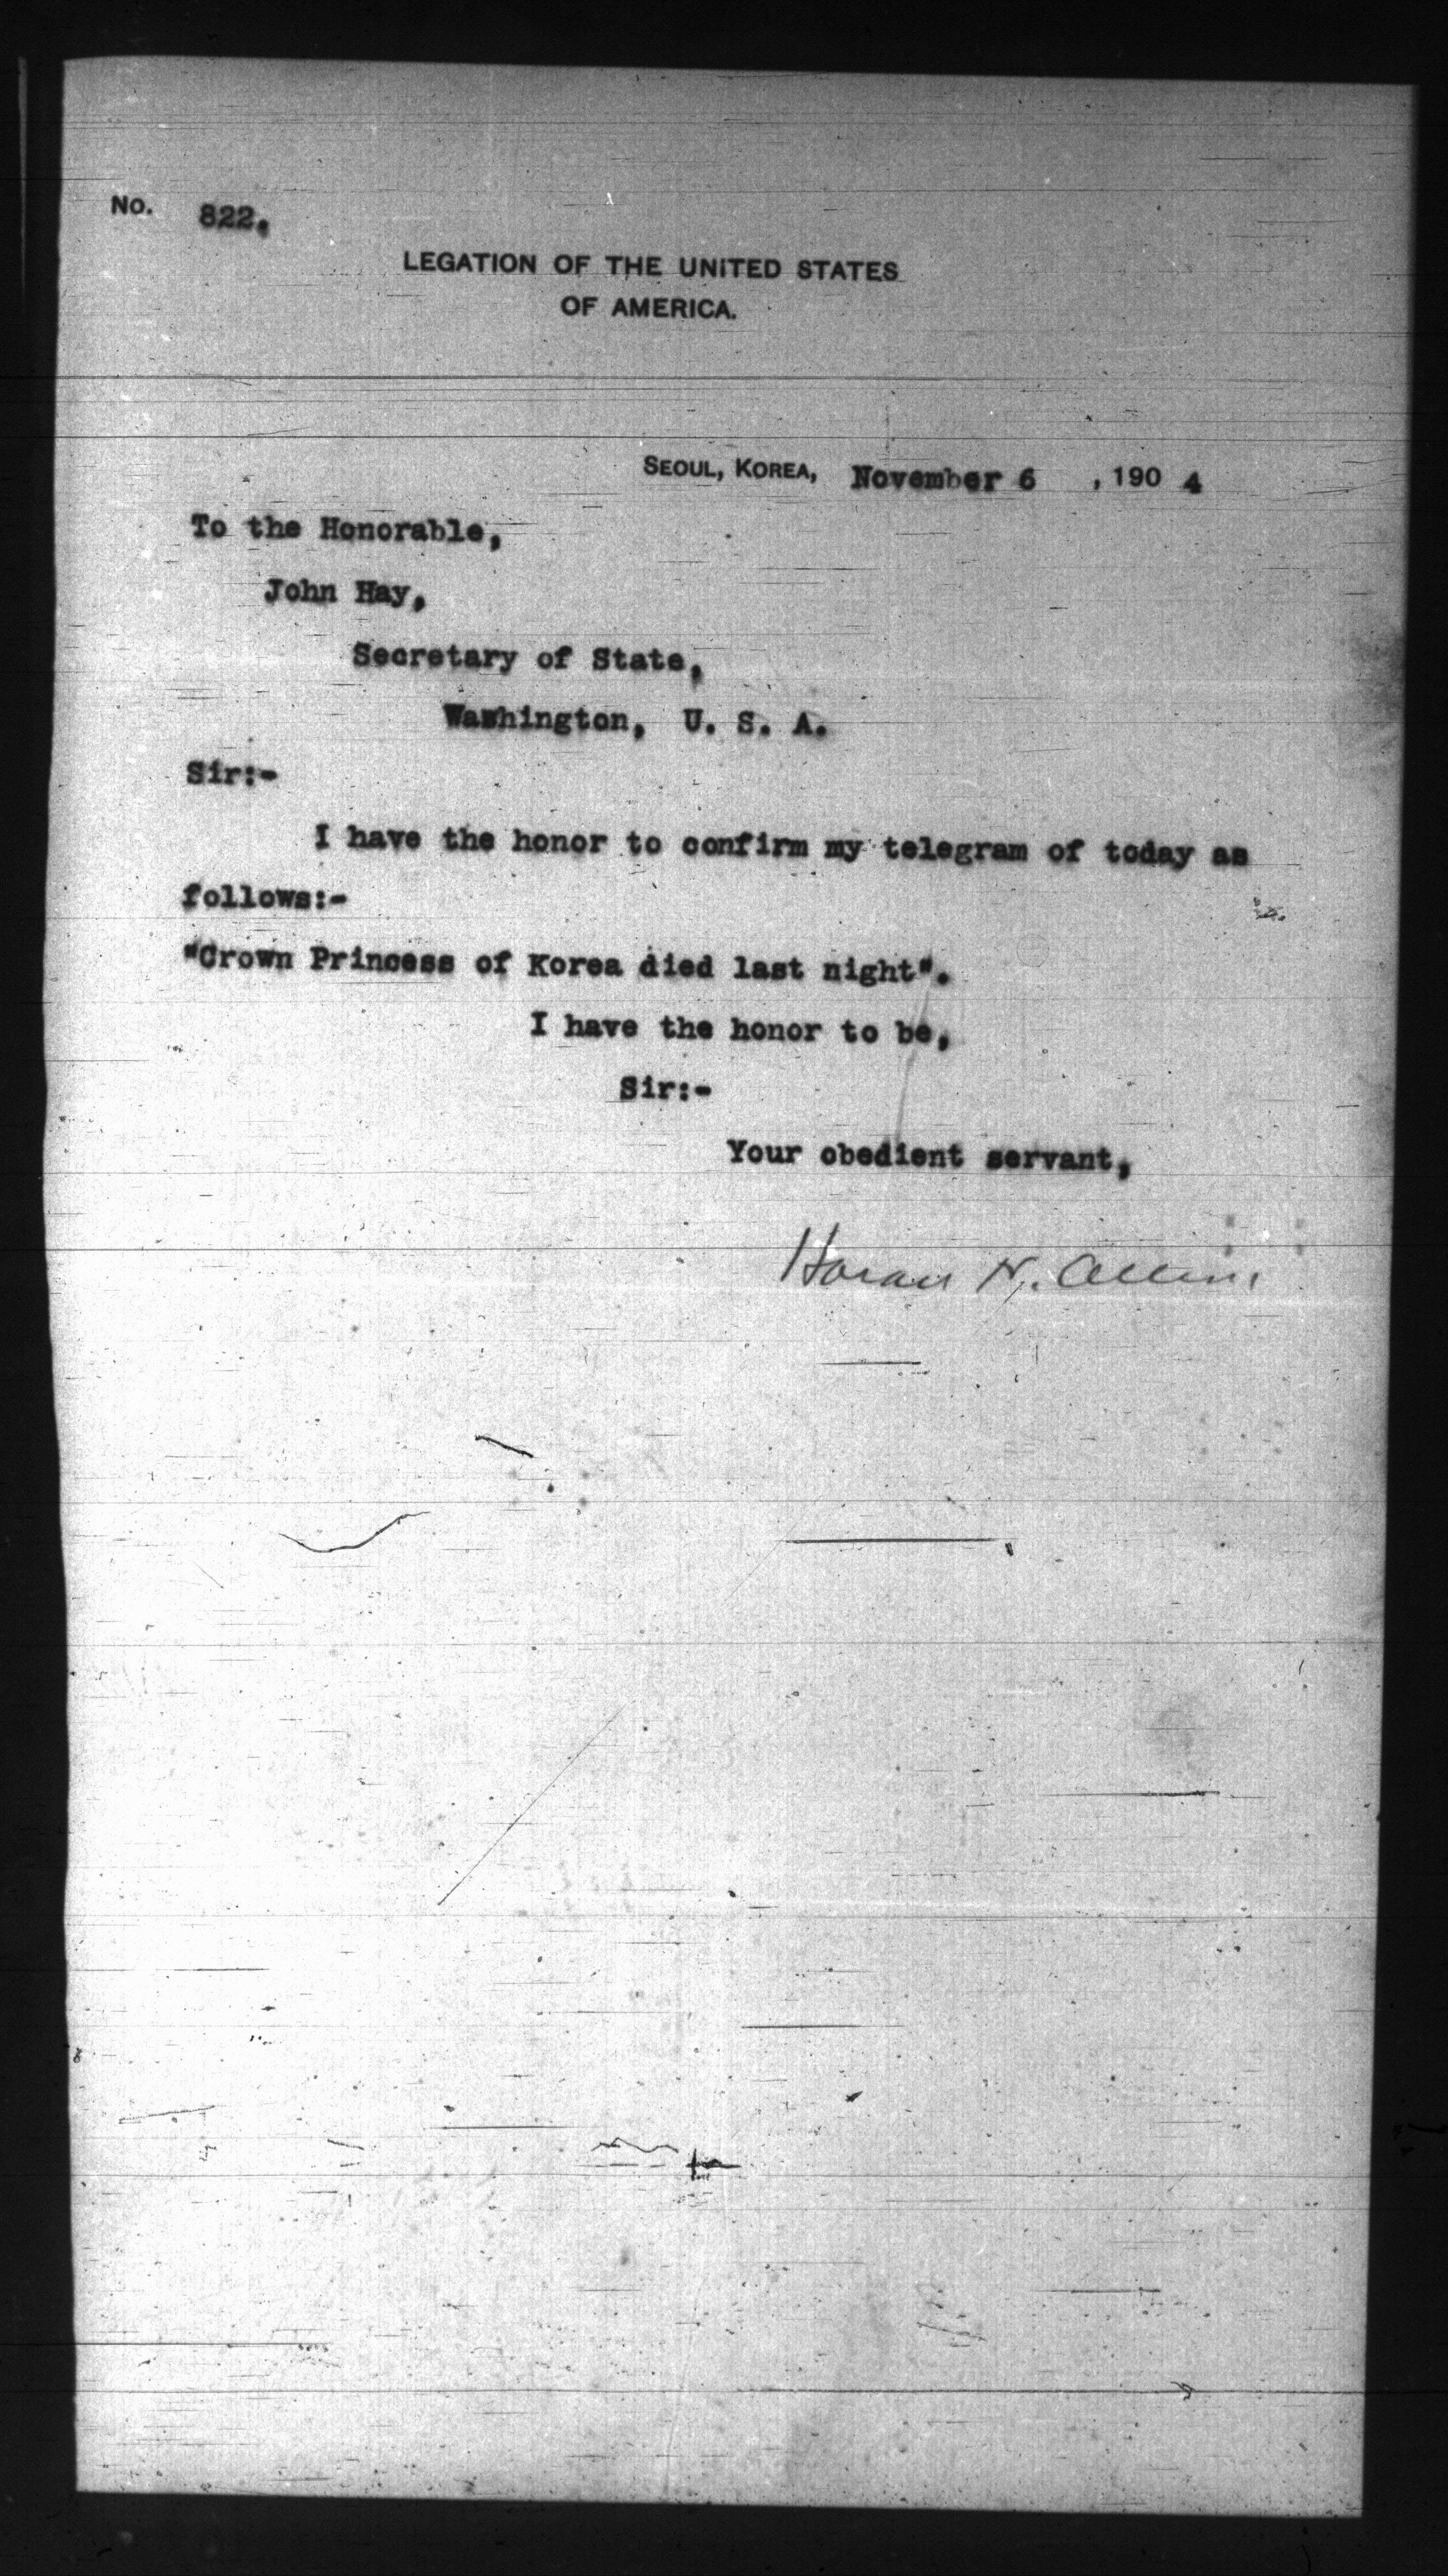 No. 822.
LEGATION OF THE UNITED STATES
OF AMERICA.
SEOUL, KOREA, November 6 , 190 4
To the Honorable,
John Hay,
Secretary of State,
Washington, U. S. A.
Sir:-
I have the honor to confirm my telegram of today as
follows:-
"Crown Princess of Korea died last night".
I have the honor to be,
Sir:-
Your obedient servant,
Horace N. Allen